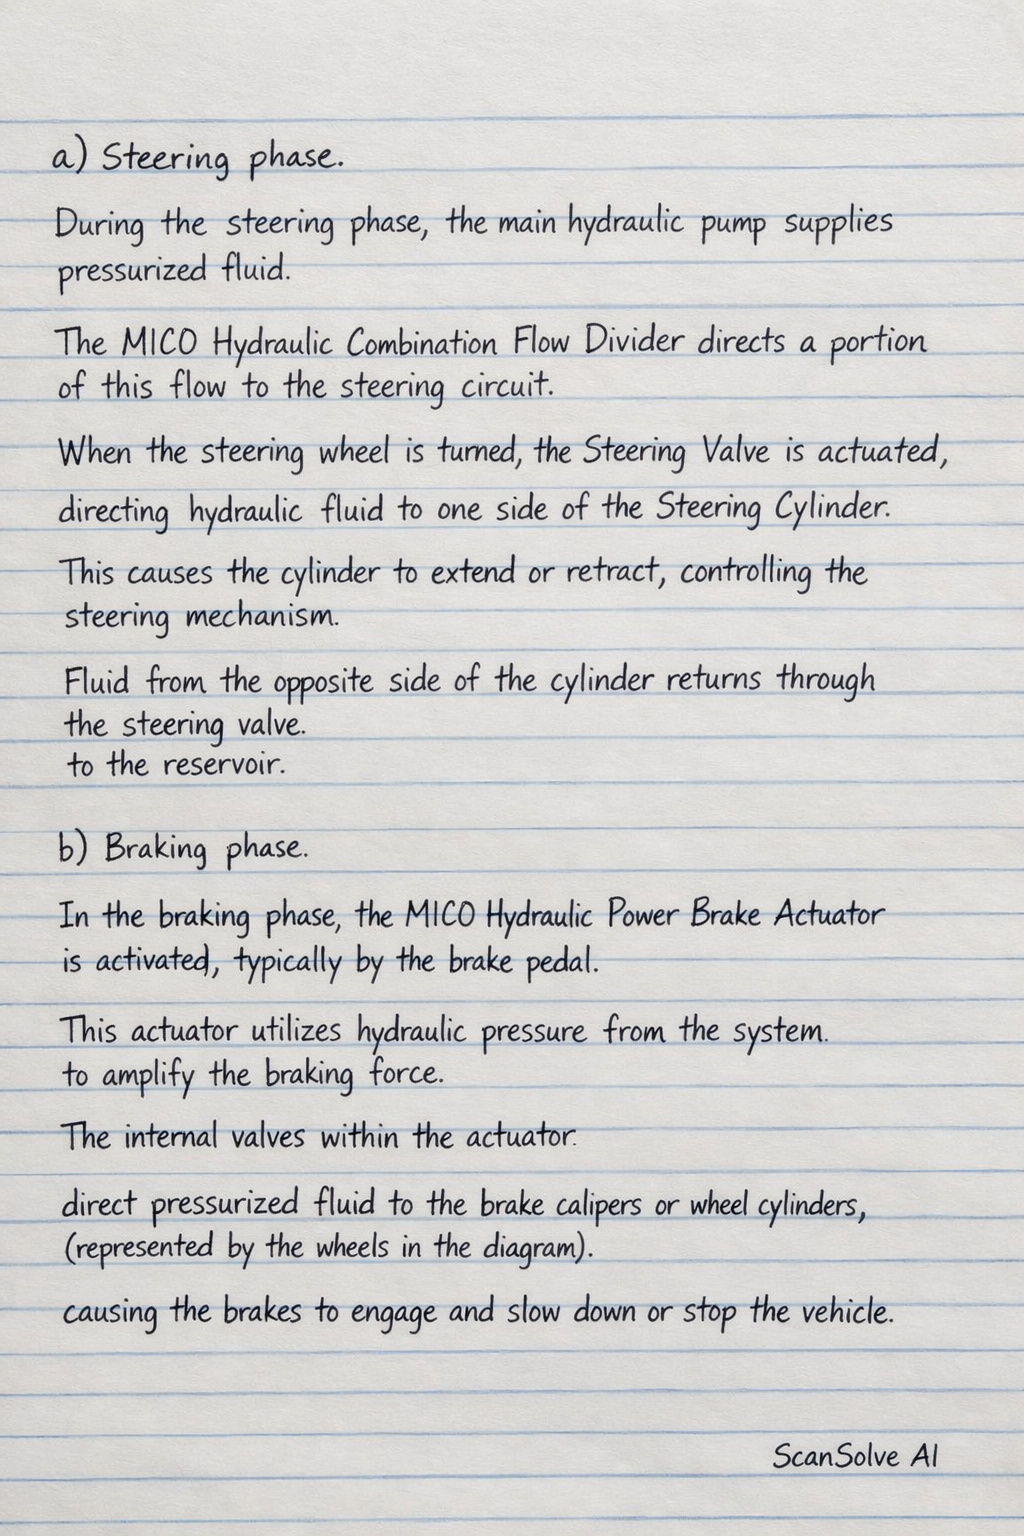 a) Steering phase.
During the steering phase, the main hydraulic pump supplies
pressurized fluid.
The MICO Hydraulic Combination Flow Divider directs a portion
of this flow to the steering circuit.
When the steering wheel is turned, the Steering Valve is actuated,
directing hydraulic fluid to one side of the Steering Cylinder.
This causes the cylinder to extend or retract, controlling the
steering mechanism.
Fluid from the opposite side of the cylinder returns through
the steering valve.
to the reservoir.
b) Braking phase.
In the braking phase, the MICO Hydraulic Power Brake Actuator
is activated, typically by the brake pedal.
This actuator utilizes hydraulic pressure from the system.
to amplify the braking force.
The internal valves within the actuator.
direct pressurized fluid to the brake calipers or wheel cylinders,
(represented by the wheels in the diagram).
causing the brakes to engage and slow down or stop the vehicle.
ScanSolve AI